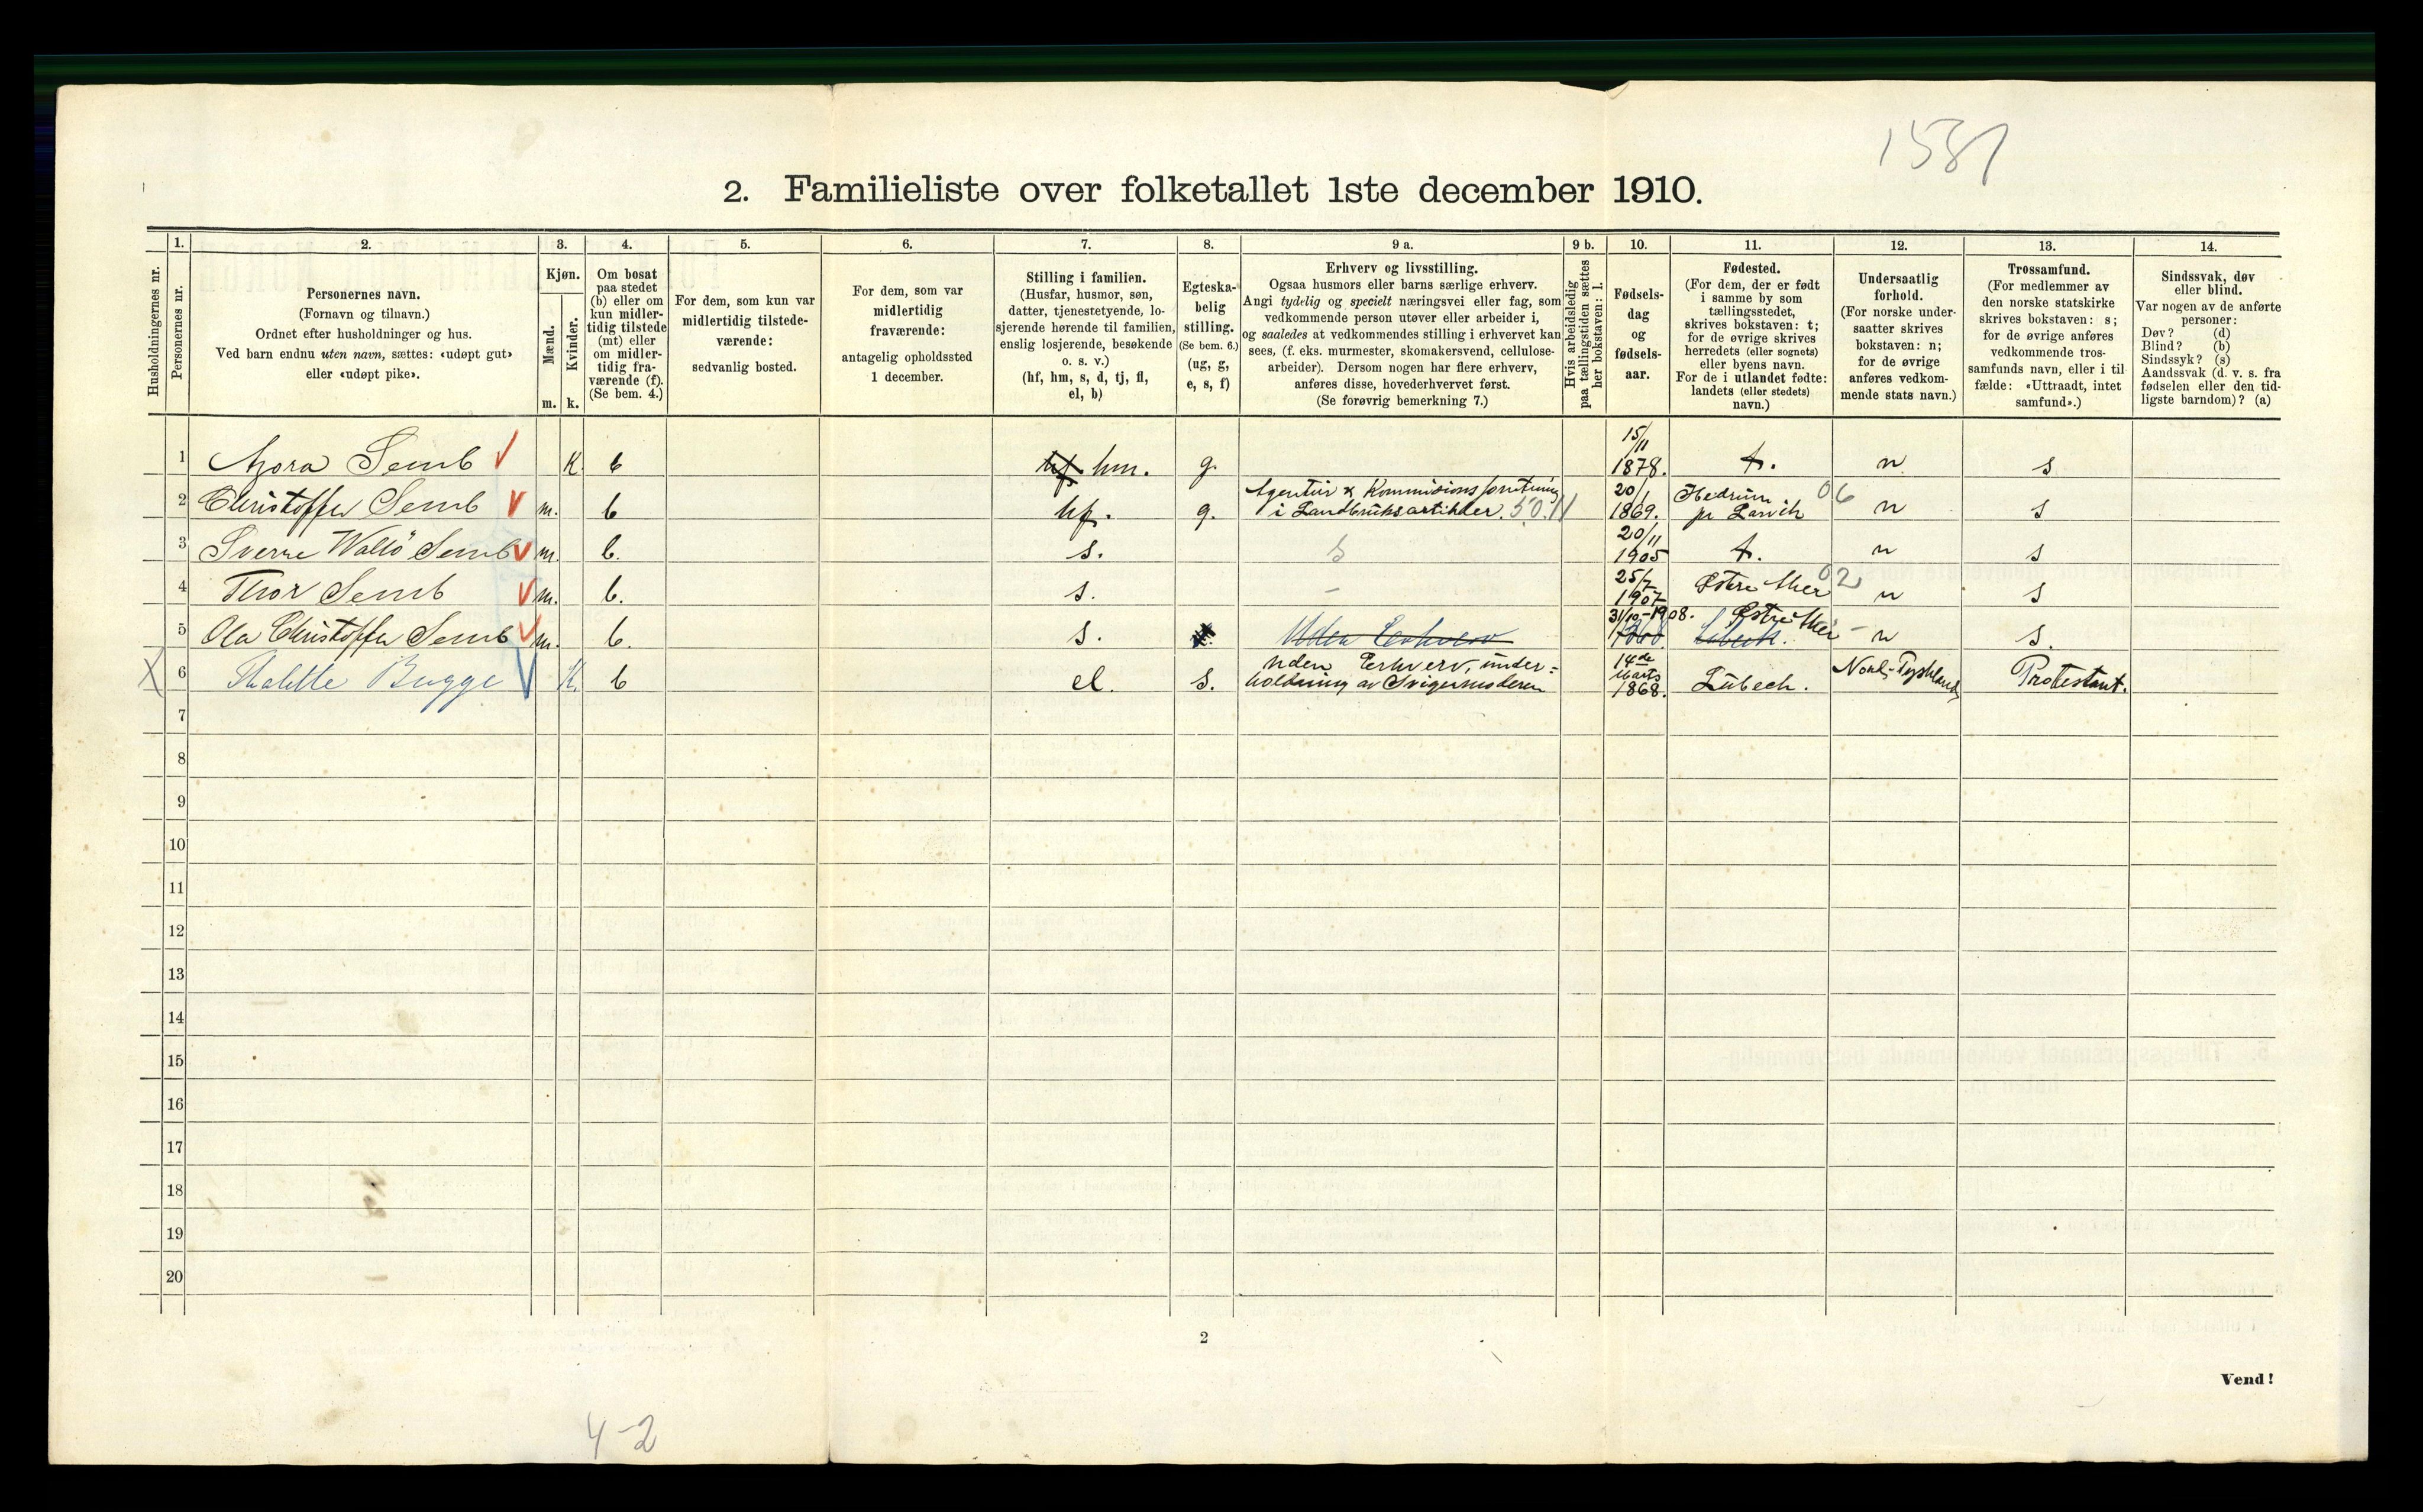 1581
2. Familieliste over folketallet 1ste december 1910.
Husholdningernes nr.
1.
Personernes nr.
2.
Personernes navn.
(Fornavn og tilnavn.)
Ordnet efter husholdninger og hus.
Ved barn endnu uten navn, sættes: «udøpt gut»
eller «udøpt pike».
3.
Kjøn.
Mænd.
Kvinder.
m. k.
4.
Om bosat
paa stedet
(b) eller om
kun midler-
tidig tilstede
(mt) eller
om midler-
tidig fra-
værende (f).
(Se bem. 4.)
5.
For dem, som kun var
midlertidig tilstede-
værende:
sedvanlig bosted.
6.
For dem, som var
midlertidig
fraværende:
antagelig opholdssted
1 december.
7.
Stilling i familien.
(Husfar, husmor, søn,
datter, tjenestetyende, lo-
sjerende hørende til familien,
enslig losjerende, besøkende
o. s. v.)
(hf, hm, s, d, tj, fl,
el, b)
8.
Egteska-
belig
stilling.
(Se bem. 6.)
(ug, g,
e, s, f)
9 a.
Erhverv og livsstilling.
Ogsaa husmors eller barns særlige erhverv.
Angi tydelig og specielt næringsvei eller fag, som
vedkommende person utøver eller arbeider i,
og saaledes at vedkommendes stilling i erhvervet kan
sees, (f. eks. murmester, skomakersvend, cellulose-
arbeider). Dersom nogen har flere erhverv,
anføres disse, hovederhvervet først.
(Se forøvrig bemerkning 7.)
9 b.
Hvis arbeidsledig
paa tællingstiden sættes
her bokstaven: l.
10.
Fødsels-
dag
og
fødsels-
aar.
11.
Fødested.
(For dem, der er født
i samme by som
tællingsstedet,
skrives bokstaven: t;
for de øvrige skrives
herredets (eller sognets)
eller byens navn.
For de i utlandet fødte:
landets (eller stedets)
navn.)
12.
Undersaatlig
forhold.
(For norske under-
saatter skrives
bokstaven: n;
for de øvrige
anføres vedkom-
mende stats navn.)
13.
Trossamfund.
(For medlemmer av
den norske statskirke
skrives bokstaven: s;
for de øvrige anføres
vedkommende tros-
samfunds navn, eller i til-
fælde: «Uttraadt, intet
samfund».)
14.
Sindssvak, døv
eller blind.
Var nogen av de anførte
personer:
Døv? (d)
Blind? (b)
Sindssyk? (s)
Aandssvak (d. v. s. fra
fødselen eller den tid-
ligste barndom)? (a)
1 Semb K b hf. hm. g. 15/11 1878. t. n s
2 Christoffer Semb m. b hf. g. Agentur & Kommisionsforretning i Landbruksartikler. 50.11 20/1 1869. Hedrum pr Larvik 06 n s
3 Sverre Wallö Semb m. b. s. s 20/11 1905 t. n s
4 Thor Semb m. b. s. – 25/7 1907 Østre Aker 02 n s
5 Ola Christoffer Semb m. b. s. Uden Erhverv 31/10-1908. Østre Aker Lübeck. n s.
X 6 Bugge K. b el. s. Uden Erhverv, under= holdning av Svigermoderen 14de Marts 1868. Lübeck. Nord-Tyskland Protestant.
7
8
9
10
11
12
13
14
15
16
17
18
19
20
2
Vend!
4-2